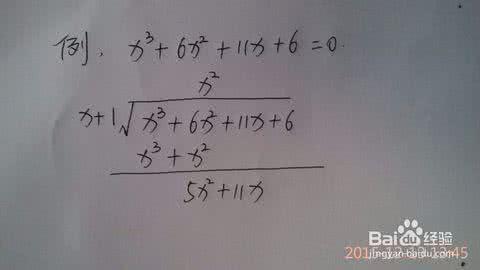 例、x³+6x²+11x+6=0.
x²
x+1√x³+6x²+11x+6
x³+x²
5x²+11x
Baidu经验
jingyan.baidu.com